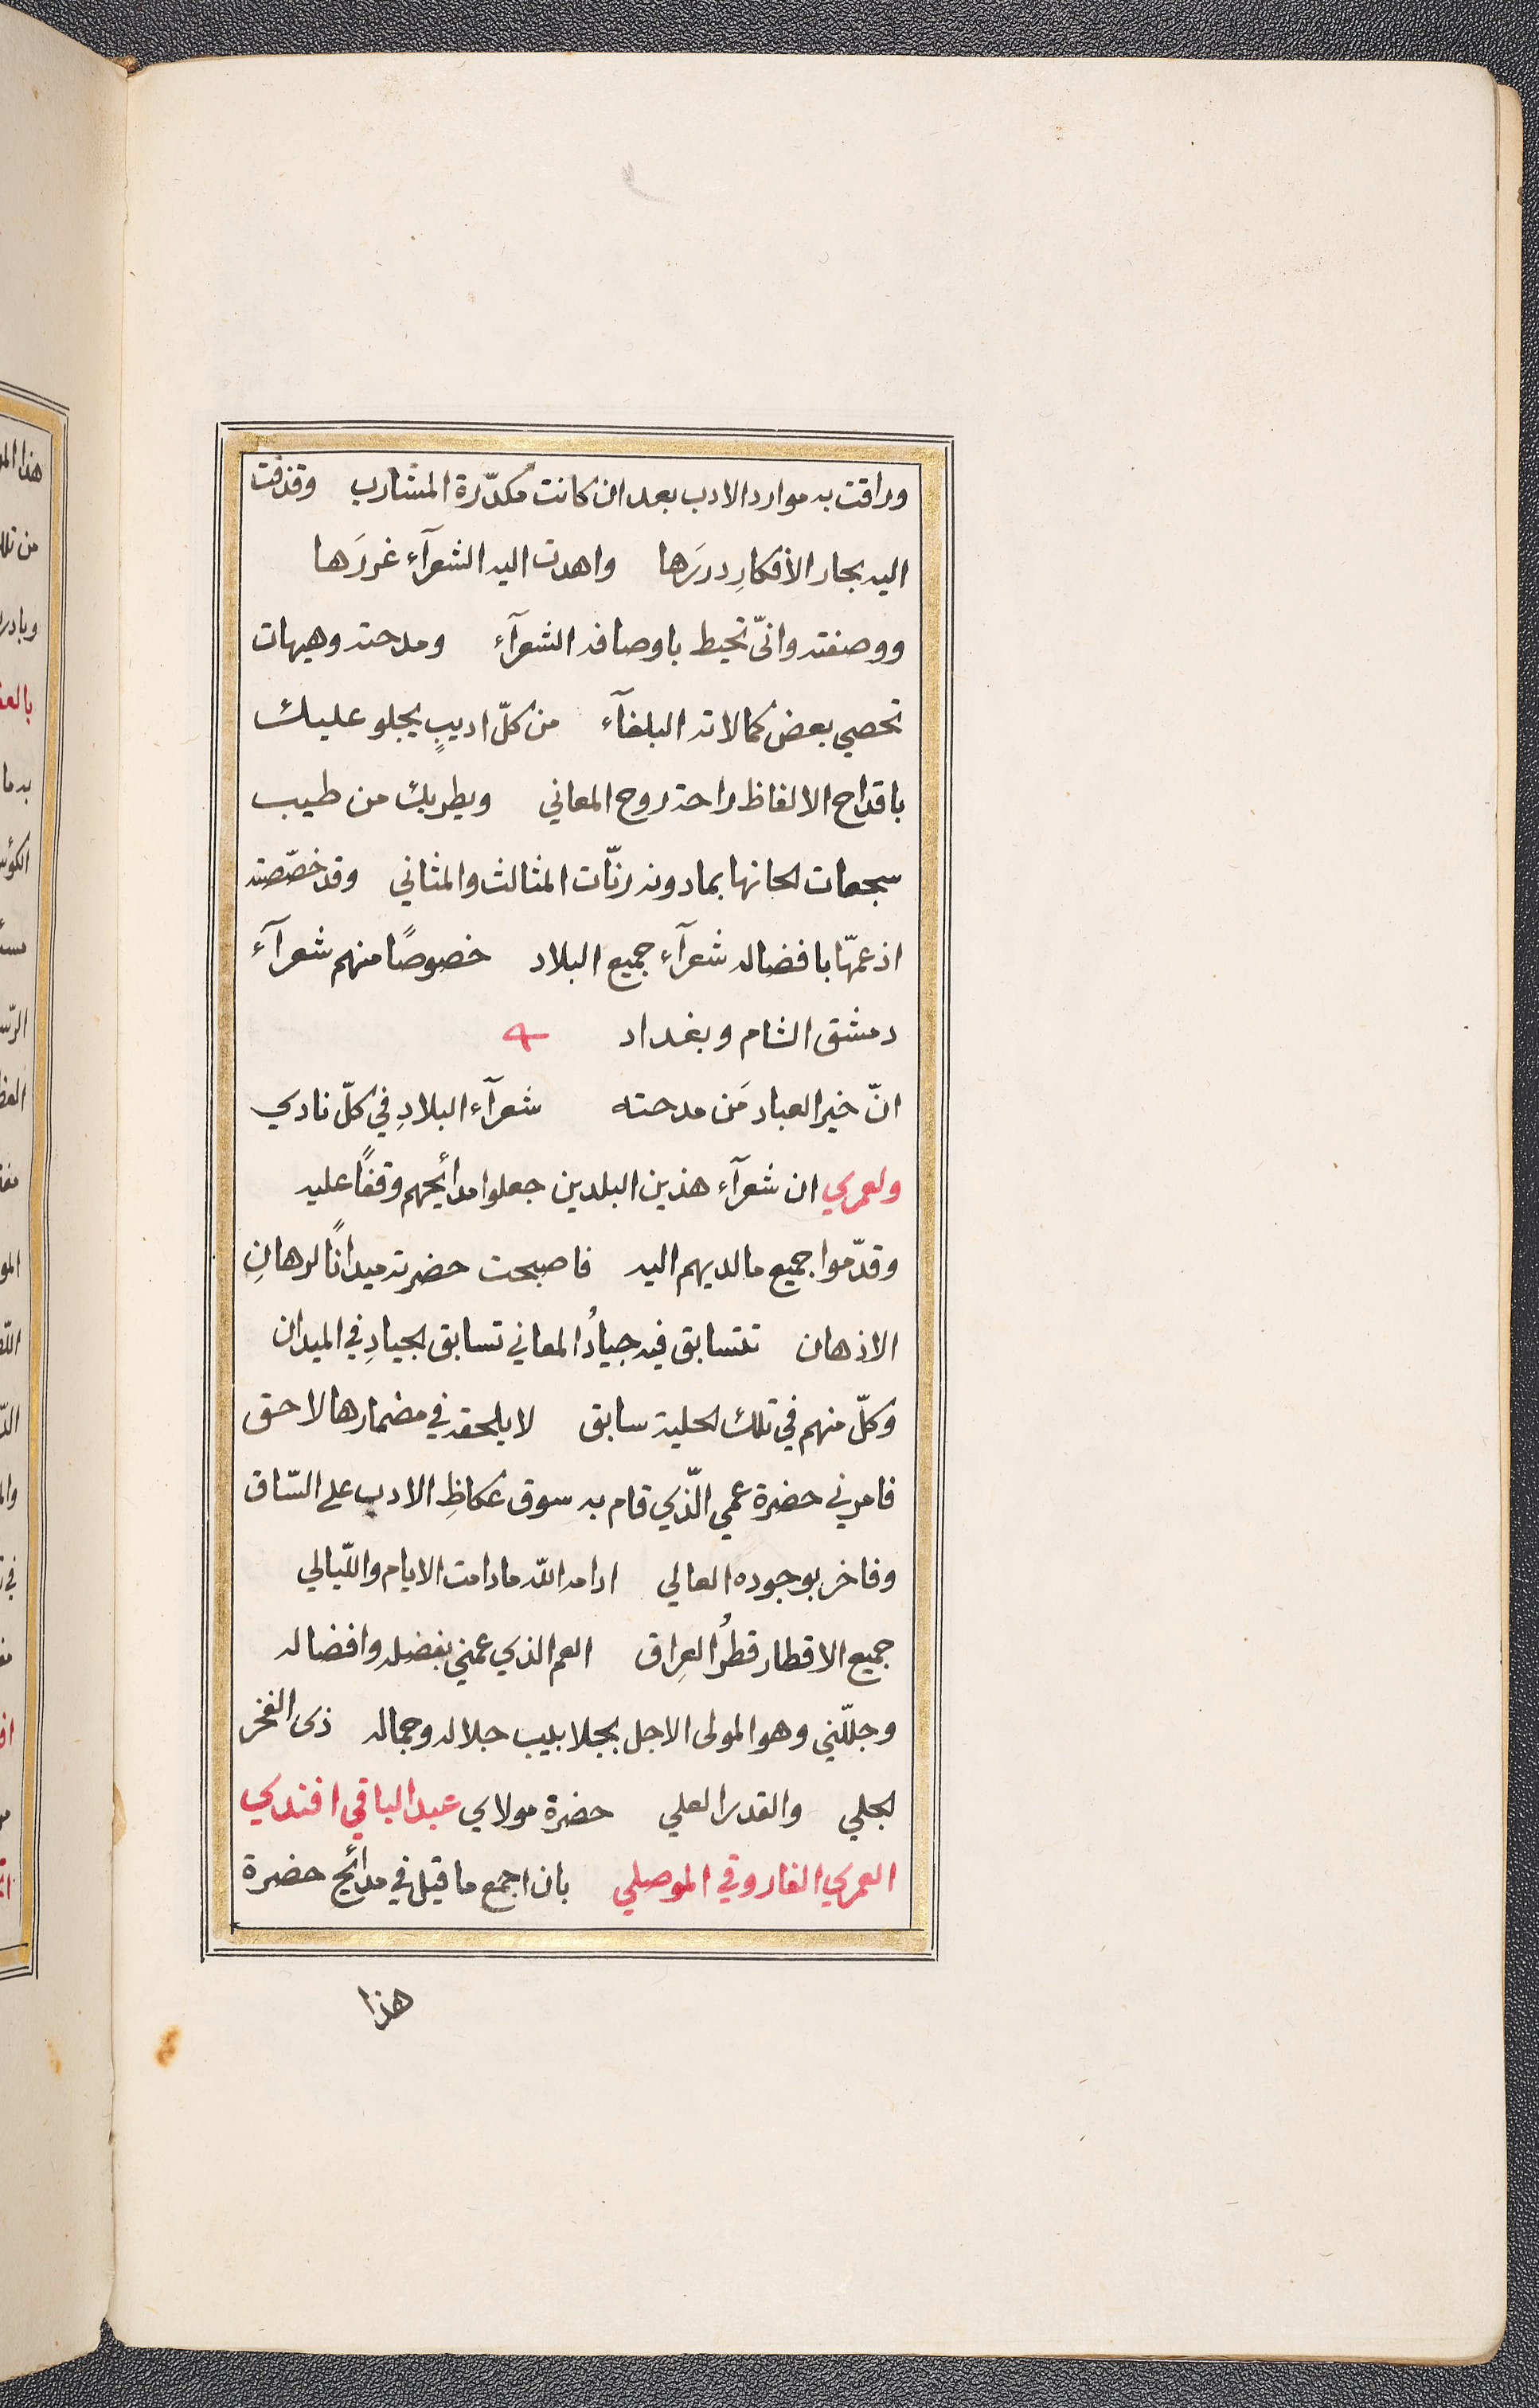 وراقت به موارد الادب بعد ان كانت مكدّرة المشارب وقذفت
اليه بحار الأفكارِ دررَها واهدت اليه الشعرآء غررَها
ووصفته وانّى تحيط باوصافه الشعرآء ومدحته وهيهات
تحصي بعض كمالاته البلغآء من كلّ اديبٍ يجلو عليك
باقداح الالفاظ راحة روح المعاني ويطربك من طيب
سجعات الحانها بمادونه رنّات المثالث والمثاني وقد خصّصته
اذ عمّها بافضاله شعرآء جميع البلاد خصوصًا منهم شعرآء
دمشق الشام وبغداد
انّ خير العباد مَن مدحته شعرآء البلادِ في كلّ نادي
ولعمري ان شعرآء هذين البلدين جعلوا مدائحهم وقفًا عليه
وقدّموا جميع مالديهم اليه فاصبحت حضرته ميدانًا لرهانِ
الاذهان تتسابق فيه جيادُ المعاني تسابق الجيادِ في الميدان
وكلّ منهم في تلك الحلية سابق لايلحقه في مضمارها لاحق
فامرني حضرة عمي الّذي قام به سوق عكاظِ الادب على السّاق
وفاخر بوجوده العالي ادامه اللّه مادامت الايام واللّيالي
جميع الاقطار قطرُ العِراق العم الذي عمني بفضله وافضاله
وجلّلني وهو المولى الاجل بجلابيب جلاله وجماله ذى الفخر
الجلي والقدر العلي حضرة مولاي عبد الباقي افندي
العمري الفاروقي الموصلي بان اجمع ما قيل في مدائح حضرة
هذا